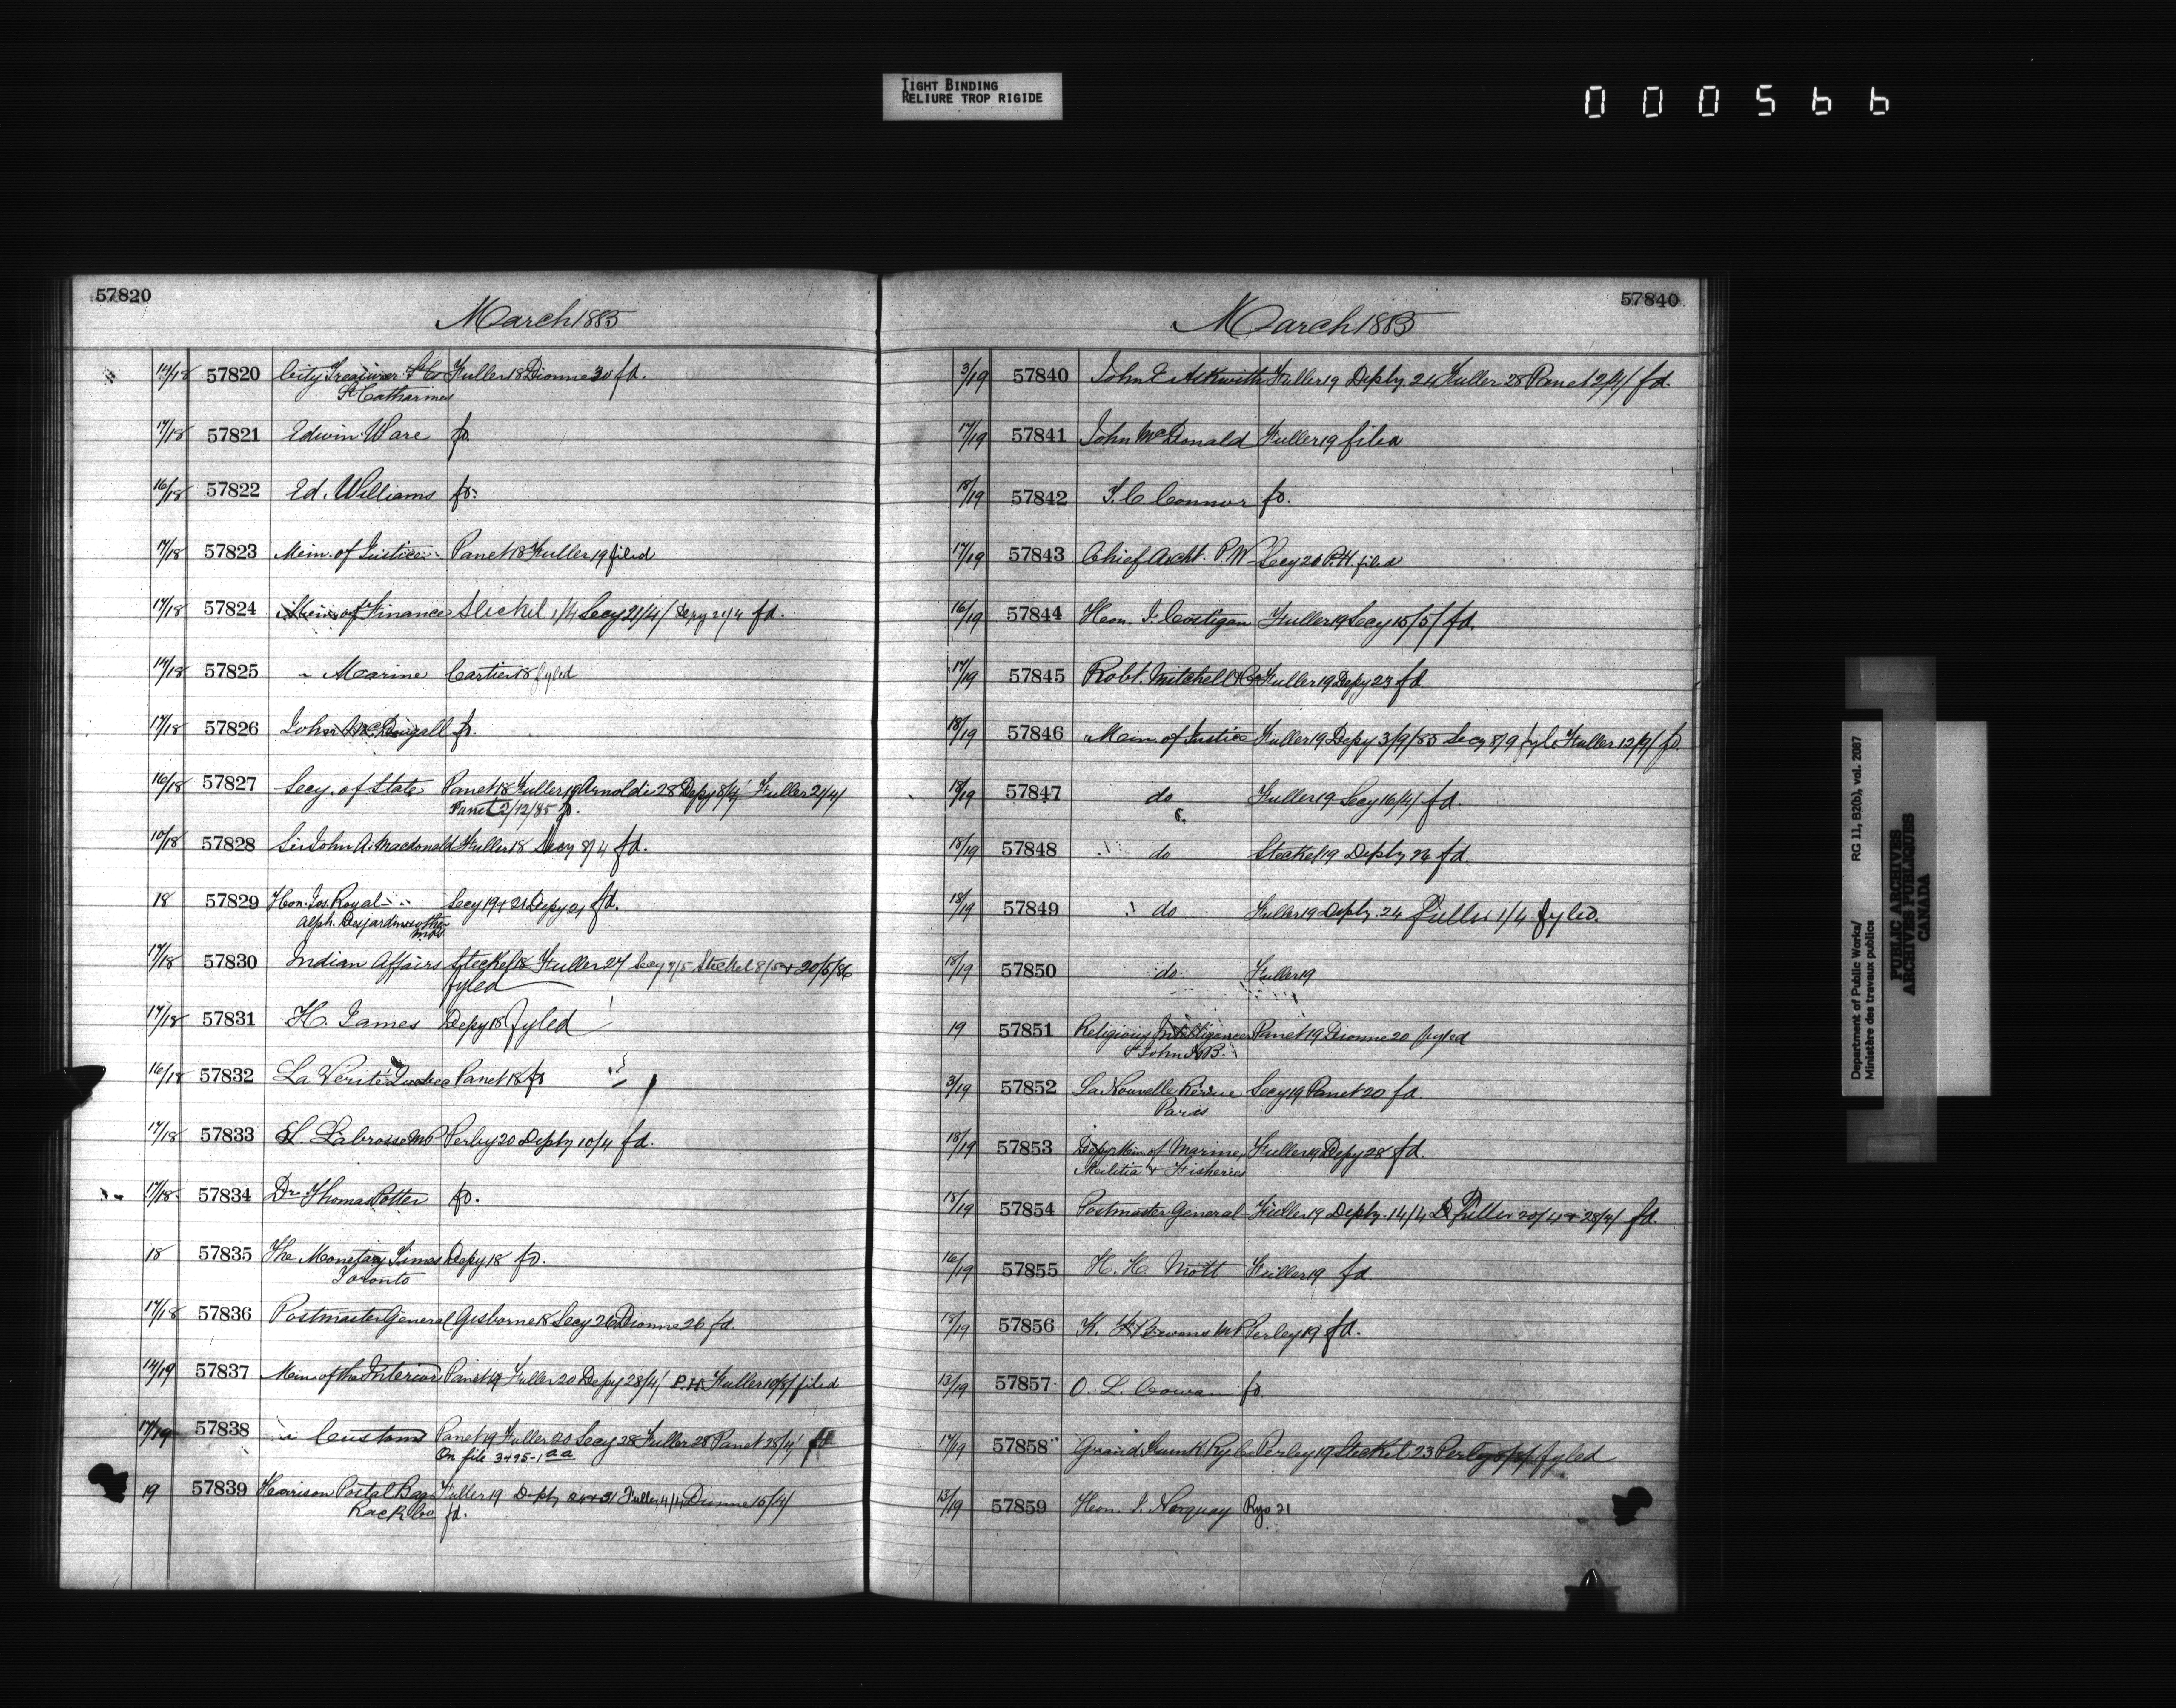 TIGHT BINDING
RELIURE TROP RIGIDE
000566
57820
March 1885
14/18 57820 City Treasurer St. C. Fuller 18 Dionne 30 fd.
St Catharines
17/18 57821 Edwin Ware fd.
16/18 57822 Ed. Williams fd.
17/18 57823 Min. of Justice Panet 18 Fuller 19 filed
17/18 57824 Min. of Finance Steckel 1/4 Secy 21/4/ Depy 21/4 fd.
14/18 57825 " Marine Cartier 18 fyled
17/18 57826 John A McDougall fd.
16/18 57827 Secy. of State Panet 18 Fuller 19 Arnoldi 28 Depy 8/4/ Fuller 21/4/
Panet 2/12/85 fd.
10/18 57828 Sir John A. Macdonald Fuller 18 Secy 8/4 fd.
18 57829 Hon. Jos. Royal Secy 19 + 21 Depy 21 fd.
Alph. Desjardins + other
mps.
17/18 57830 Indian Affairs Steckel 18 Fuller 27 Secy 7/5 Steckel 8/5 + 20/5/86
fyled
17/18 57831 H. James Depy 18 fyled
16/18 57832 La Verité Quebec Panet 18 fd
17/18 57833 Labrosse MP Perley 20 Deply 10/4 fd.
17/18 57834 Dr Thomas Potter fd.
18 57835 The Monetary Times Depy 18 fd.
Toronto
17/18 57836 Postmaster General Gisborne 18 Secy 26 Dionne 26 fd.
14/19 57837 Min of the Interior Panet 19 Fuller 20 Depy 28/4/ P.H. Fuller 10/8/ filed
17/19 57838 " Customs Panet 19 Fuller 20 Secy 28 Fuller 28 Panet 28/4/ fd
On file 3495-1 aa
19 57839 Harrison Postal Bag Fuller 19 Deply 24 + 31 Fuller 4/4/ Dionne 15/4/
Rack Co fd.
57840
March 1885
3/19 57840 John E Askwith Fuller 19 Deply 24 Fuller 28 Panet 2/4/ fd.
17/19 57841 John McDonald Fuller 19 filed
18/19 57842 Connor fd.
17/19 57843 Chief Archt. P.W. Secy 20 P.H. filed
16/19 57844 Hon. J. Costigan Fuller 19 Secy 15/5/ fd.
17/19 57845 Robt. Mitchell & Co Fuller 19 Depy 23 fd.
18/19 57846 Min. of Justice Fuller 19 Depy 3/9/85 Secy 8/9 fyle Fuller 12/9/ fd.
18/19 57847 do Fuller 19 Secy 16/4/ fd.
18/19 57848 do Steckel 19 Deply 26 fd.
18/19 57849 do Fuller 19 Deply. 24 Fuller 1/4 fyled.
18/19 57850 do Fuller 19
19 57851 Religious Intelligencer Panet 19 Dionne 20 fyled
St John N.B.
3/19 57852 La Nouvelle Revue Secy 19 Panet 20 fd.
Paris
18/19 57853 Depy Min of Marine, Fuller 19 Depy 28 fd.
Militia & Fisheries
18/19 57854 Postmaster General Fuller 19 Deply. 14/4 D Fuller 20/4 + 28/4/ fd.
16/19 57855 H. H. Mott Fuller 19 fd.
18/19 57856 Perley 19 fd.
13/19 57857 O. L. Cowan fd.
17/19 57858 Grand Trunk Ry Co Perley 19 Steckel 23 Perley fyled
13/19 57859 Hon. J. Norquay Rys 21
Department of Public Works/
Ministère des travaux publics
RG 11, B2(b), vol. 2087
PUBLIC ARCHIVES
ARCHIVES PUBLIQUES
CANADA